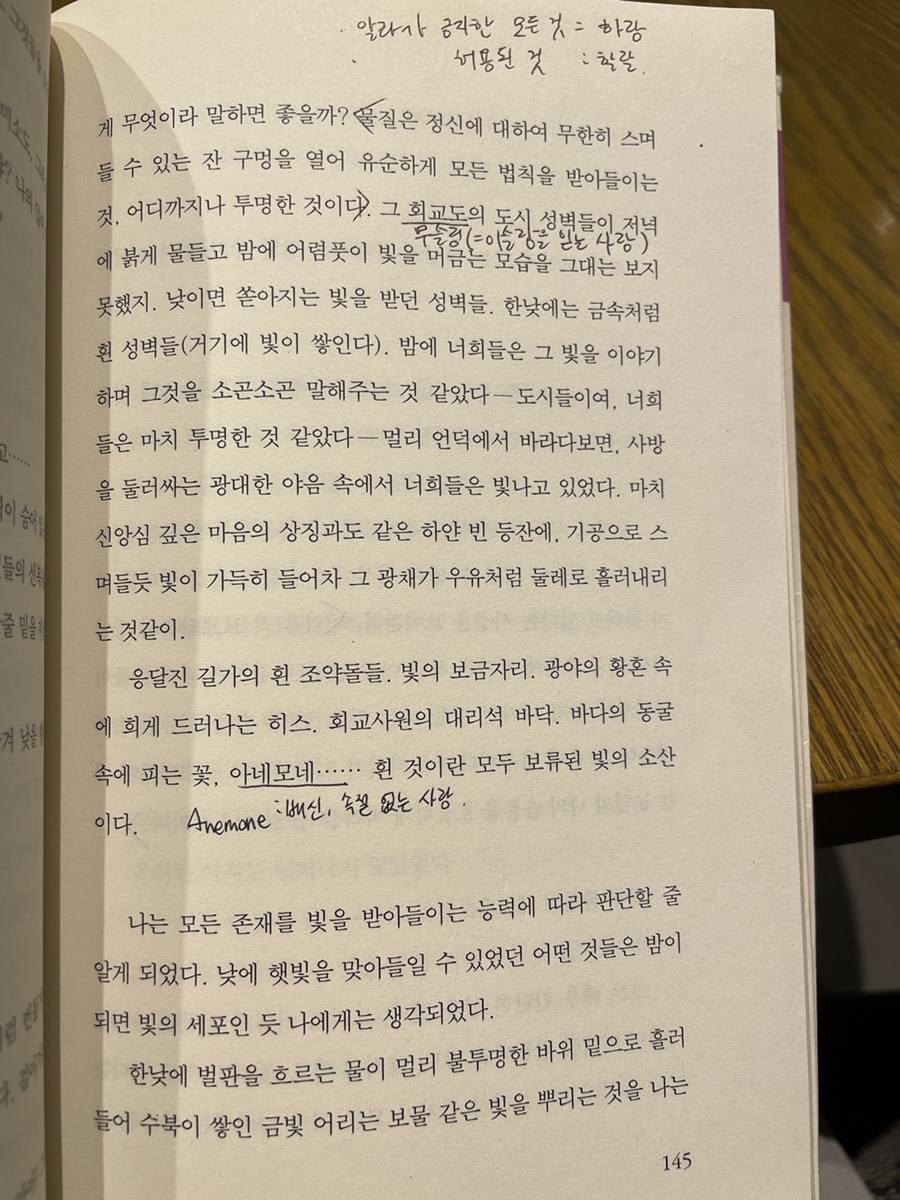 · 알라가 금지한 모든 것 = 하람
· 허용된 것 : 할랄.
게 무엇이라 말하면 좋을까? 물질은 정신에 대하여 무한히 스며
들 수 있는 잔 구멍을 열어 유순하게 모든 법칙을 받아들이는
것, 어디까지나 투명한 것이다. 그 회교도의 도시 성벽들이 저녁
무슬림(=이슬람을 믿는 사람)
에 붉게 물들고 밤에 어렴풋이 빛을 머금는 모습을 그대는 보지
못했지. 낮이면 쏟아지는 빛을 받던 성벽들. 한낮에는 금속처럼
흰 성벽들(거기에 빛이 쌓인다). 밤에 너희들은 그 빛을 이야기
하며 그것을 소곤소곤 말해주는 것 같았다―도시들이여, 너희
들은 마치 투명한 것 같았다―멀리 언덕에서 바라다보면, 사방
을 둘러싸는 광대한 야음 속에서 너희들은 빛나고 있었다. 마치
신앙심 깊은 마음의 상징과도 같은 하얀 빈 등잔에, 기공으로 스
며들듯 빛이 가득히 들어차 그 광채가 우유처럼 둘레로 흘러내리
는 것같이.
응달진 길가의 흰 조약돌들. 빛의 보금자리. 광야의 황혼 속
에 희게 드러나는 히스. 회교사원의 대리석 바닥. 바다의 동굴
속에 피는 꽃, 아네모네…… 흰 것이란 모두 보류된 빛의 소산
이다.
Anemone : 배신, 속절 없는 사랑.
나는 모든 존재를 빛을 받아들이는 능력에 따라 판단할 줄
알게 되었다. 낮에 햇빛을 맞아들일 수 있었던 어떤 것들은 밤이
되면 빛의 세포인 듯 나에게는 생각되었다.
한낮에 벌판을 흐르는 물이 멀리 불투명한 바위 밑으로 흘러
들어 수북이 쌓인 금빛 어리는 보물 같은 빛을 뿌리는 것을 나는
145